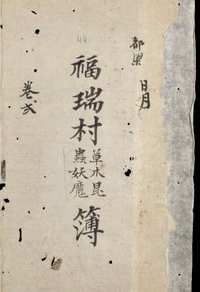 都梁
日月
福瑞村草木昆蟲妖魔簿
卷弍